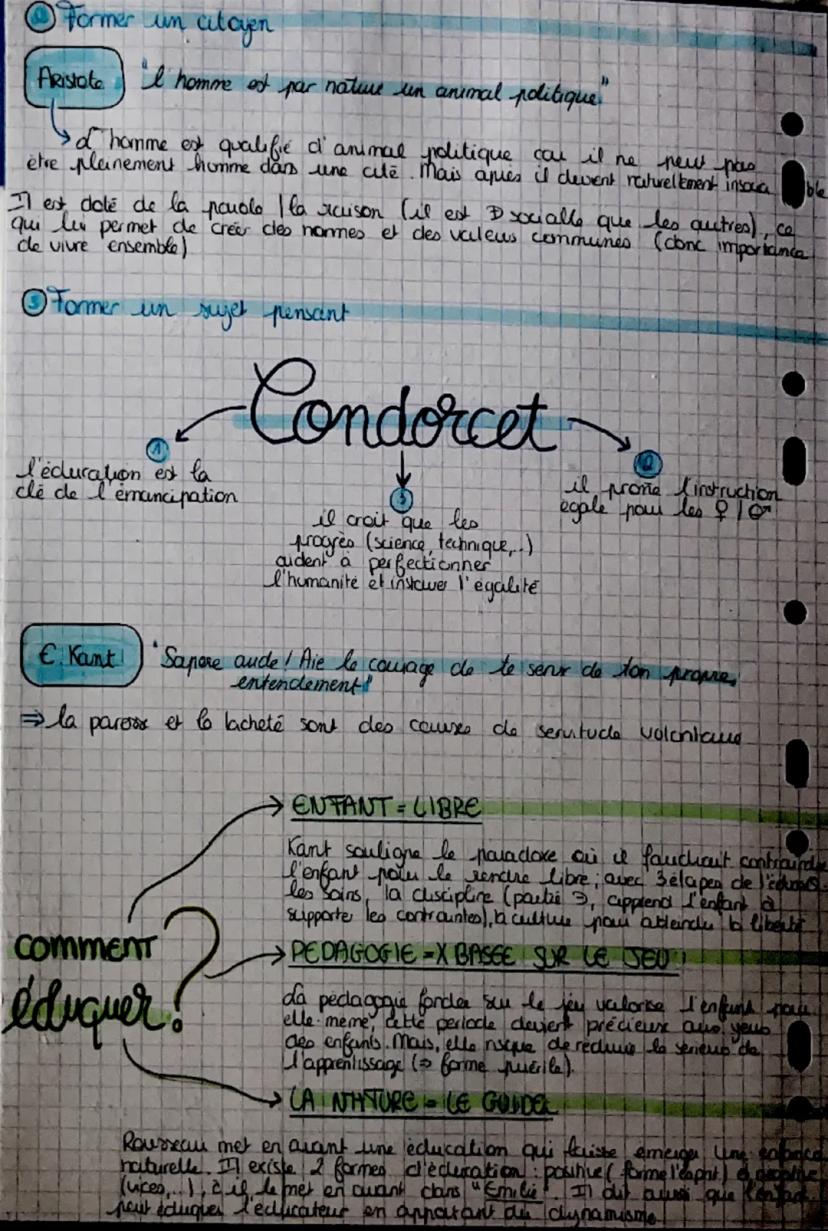 ② Former un citoyen
Aristote "l'homme est par nature un animal politique"
L'homme est qualifié d'animal politique car il ne peut pas
être pleinement homme dans une cité. Mais après il devient naturellement
Il est doté de la parole / la raison (il est sociable que les autres), ce
qui lui permet de créer des normes et des valeurs communes (donc importance
de vivre ensemble)
③ Former un sujet pensant
Condorcet
①
l'éducation est la
clé de l'émancipation
③
il croit que les
progrès (science, technique,..)
aident à perfectionner
l'humanité et instaurer l'égalité
②
il prone l'instruction
égale pour les ♀ / ♂
E. Kant "Sapere aude! Aie le courage de te servir de ton propre
entendement"
⇒ la paresse et la lacheté sont des causes de servitude volontaire
comment
éduquer?
ENFANT = LIBRE
Kant souligne le paradoxe où il faudrait contraindre
l'enfant pour le rendre libre; avec 3 étapes de
les soins, la discipline (partie 3, apprend l'enfant à
supporte les contraintes), la culture pour atteindre la liberté
PEDAGOGIE = X BASSE SUR LE JEU
La pédagogie fondée sur le jeu valorise l'enfant pour
elle-meme, cette periode devient précieux aux yeux
des enfants. Mais, elle risque de reduire le serieux de
l'apprentissage (⇒ forme puérile).
LA NATURE = LE GUIDE
Rousseau met en avant une éducation qui laisse émerger une
naturelle. Il existe 2 formes d'éducation: positive (forme l'esprit)
(vices,..), il le met en avant dans "Emile". Il dit aussi que
peut éduquer l'éducateur en apportant du dynamisme.